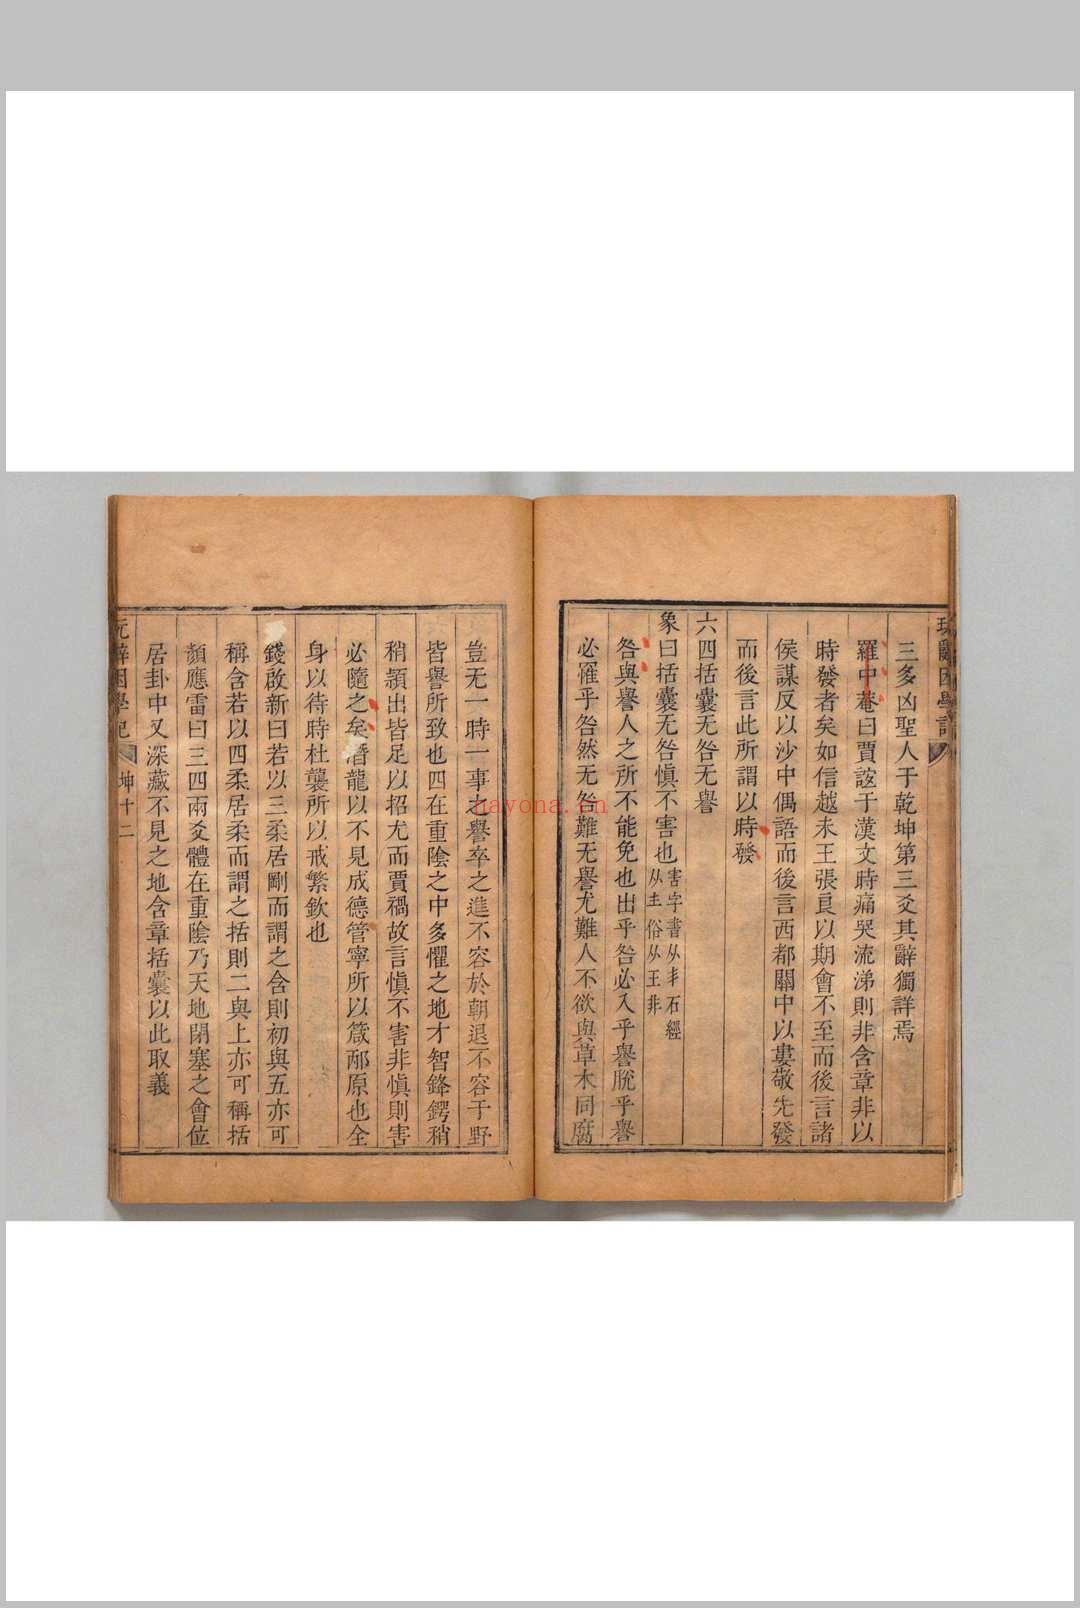 三多凶聖人于乾坤第三爻其辭獨詳焉
羅中菴曰賈誼于漢文時痛哭流涕則非含章非以
時發者矣如信越未王張良以期會不至而後言諸
侯謀反以沙中偶語而後言西都關中以婁敬先發
而後言此所謂以時發
六四括囊无咎无譽
象曰括囊无咎愼不害也害字書从丯石經
从土俗从王非
咎與譽人之所不能免也出乎咎必入乎譽脫乎譽
必罹乎咎然无咎難无譽尤難人不欲與草木同腐
豈无一時一事之譽卒之進不容於朝退不容于野
皆譽所致也四在重陰之中多懼之地才智鋒鍔稍
稍頴出皆足以招尤而賈禍故言愼不害非愼則害
必隨之矣潛龍以不見成德管寧所以箴邴原也全
身以待時杜襲所以戒繁欽也
錢啟新曰若以三柔居剛而謂之含則初與五亦可
稱含若以四柔居柔而謂之括則二與上亦可稱括
顏應雷曰三四兩爻體在重陰乃天地閉塞之會位
居卦中又深藏不見之地含章括囊以此取義
玩辭困學記
坤十二
hayona.cn